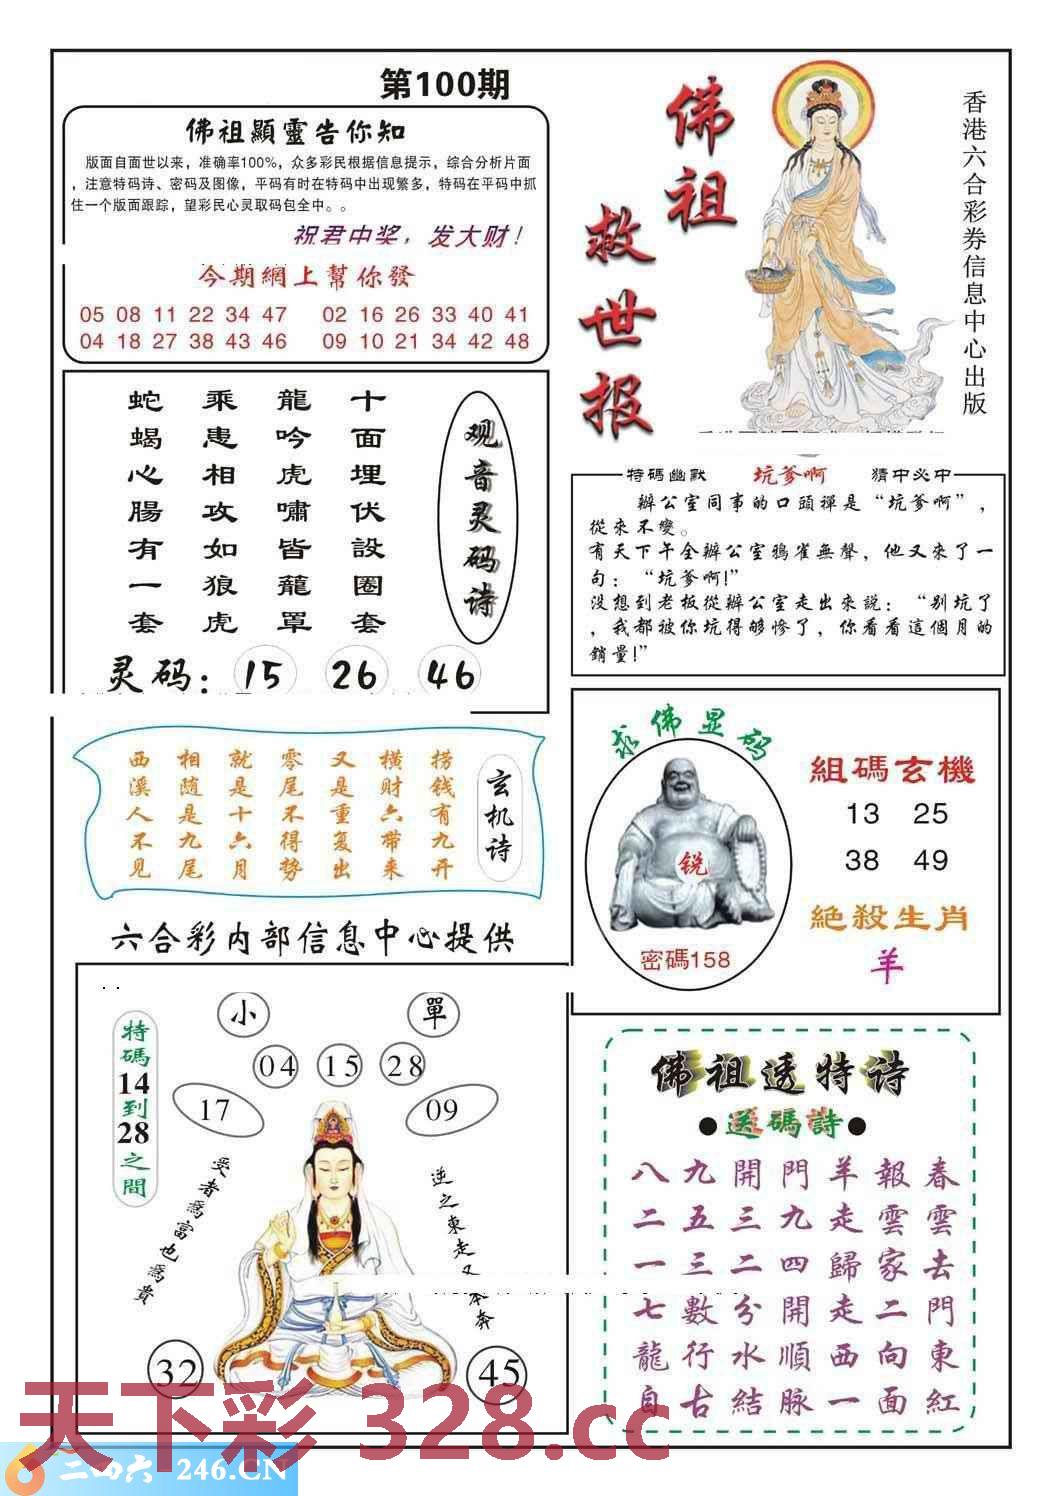 第100期
佛祖顯靈告你知
版面自面世以来，准确率100%，众多彩民根据信息提示，综合分析片面
，注意特码诗、密码及图像，平码有时在特码中出现繁多，特码在平码中抓
住一个版面跟踪，望彩民心灵取码包全中。。
祝君中奖，发大财！
今期網上幫你發
05 08 11 22 34 47 02 16 26 33 40 41
04 18 27 38 43 46 09 10 21 34 42 48
佛祖
救世报
香港六合彩券信息中心出版
观音灵码诗
十面埋伏設圈套
龍吟虎嘯皆龍罩
乘患相攻如狼虎
蛇蝎心腸有一套
灵码：15 26 46
特碼幽默 坑爹啊 猜中必中
辦公室同事的口頭禪是“坑爹啊”，
從來不變。
有天下午全辦公室鴉雀無聲，他又來了一
句：“坑爹啊!”
沒想到老板從辦公室走出來説：“别坑了
，我都被你坑得够慘了，你看看這個月的
銷量!”
玄机诗
捞钱有九开
横财六带来
又是重复出
零尾不得势
就是十六月
相随是九尾
西溪人不见
求佛显码
锐
密碼158
組碼玄機
13 25
38 49
絶殺生肖
羊
六合彩内部信息中心提供
小 單
04 15 28
17 09
特碼14到28之間
受者爲富也爲貴
逆之東走又
奔
32 45
佛祖透特诗
●送碼詩●
春雲去門東紅
報雲家二向面
羊走歸走西一
門九四開順脉
開三二分水結
九五三數行古
八二一七龍自
天下彩 328.cc
二四六 246.CN